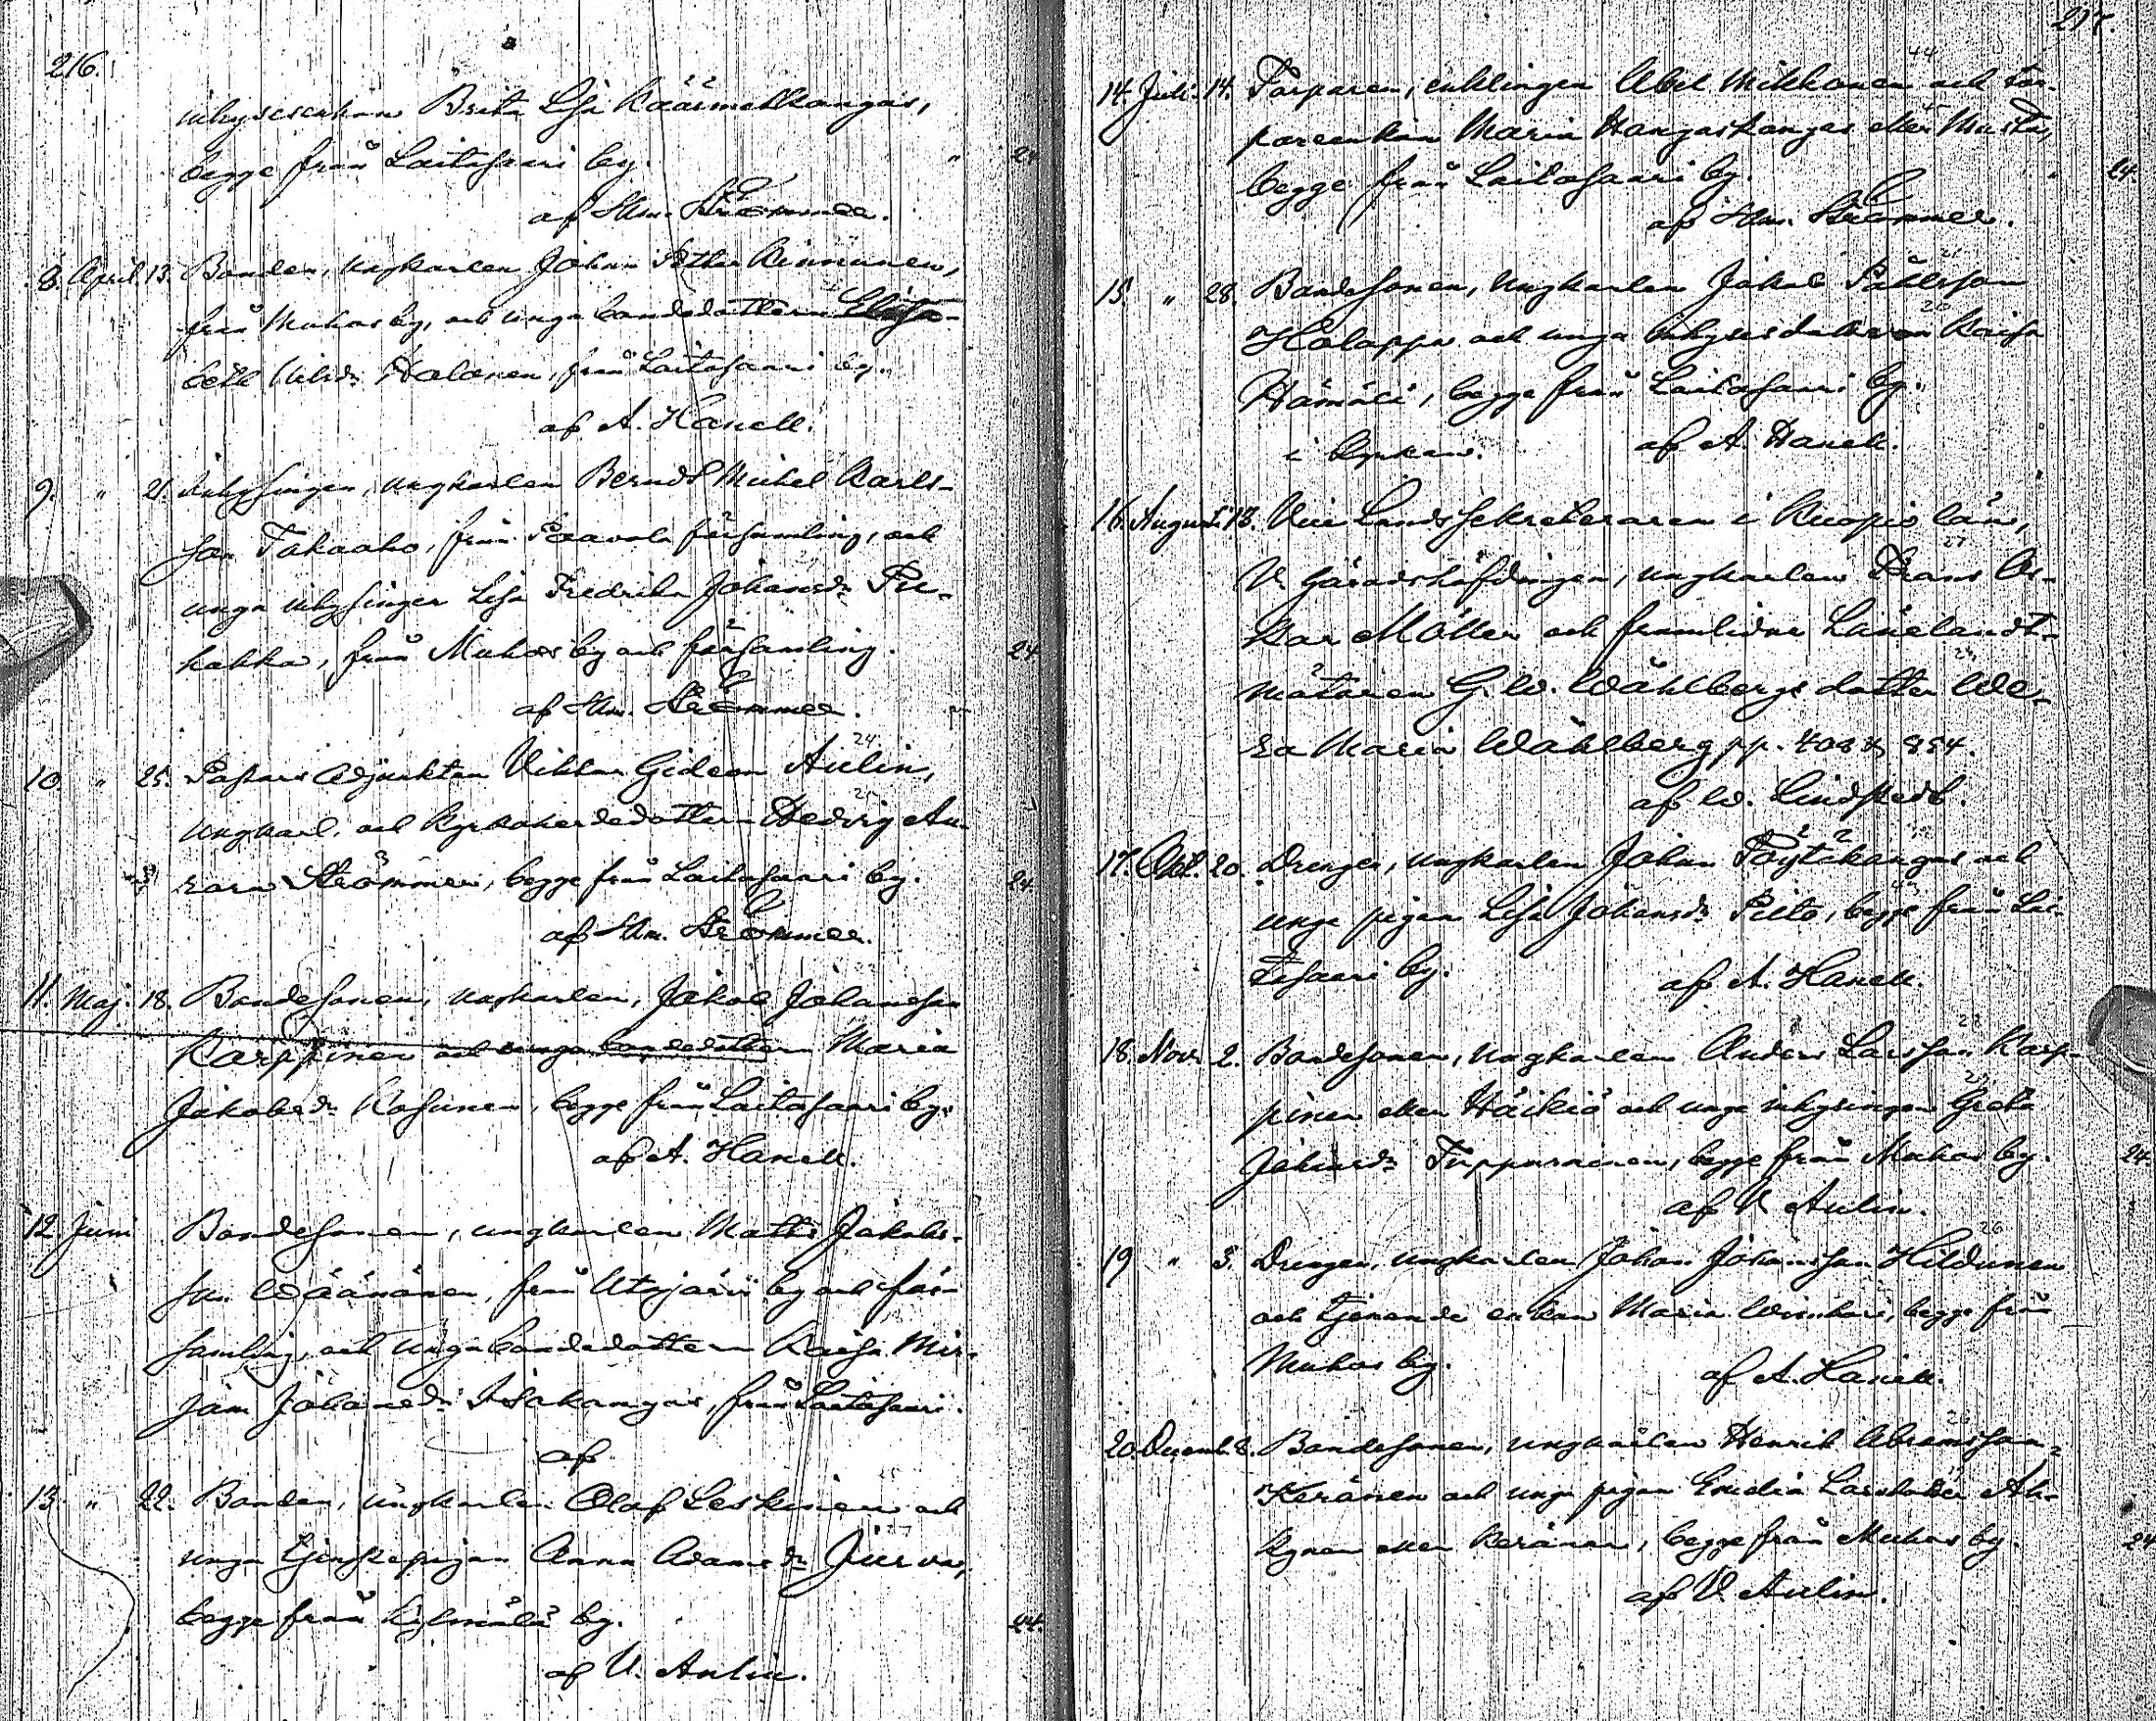 216.
inhyseenkan Brita Lisa Käärmetkangas,
begge från Laitasaari by. " 24
af Hm. Strömmer.
8. April 13. Bonden, ungkarlen Johan Petter Kinnunen,
från Muhos by, och unga bondedottern Elisa-
beth Halonen, från Laitasaari by.
af A. Hanell.
9. " 21. Inhysingen, ungkarlen Berndt Mickel Karls-
son Takaaho, från Paavola församling, och
unga inhysingen Lisa Fredrika Johansdr Pu-
hakka, från Muhos by och församling. 24
af Hm. Strömmer.
24
10. " 25. Pastors Adjunkten Viktor Gideon Aulin,
21
ungkarl, och Kyrkoherdedottern Hedvig Au-
rora Strömmer, begge från Laitasaari by. 24
af Hm. Strömmer.
22
11. Maj. 18. Bondesonen, ungkarlen, Jakob Johansson
Karppinen och unga bondedottern Maria
Jakobsdr Kosunen, begge från Laitasaari by.
af A. Hanell.
12. Juni Bondesonen, ungkarlen Matts Jakobs-
son Väänänen, från Utajärvi by och för-
samling, och unga bondedottern Kaisa Mir-
jam Johansdr Isokangas, från Laitasaari.
af
13. " 22. Bonden, ungkarlen Olof Leskinen och
27
unga tjenstepigan Anna Adamsdr Jurva,
begge från Kylmälä by. 24.
af V. Aulin.
217.
44
14. Juli. 14. Torparen, enklingen Abel Mikkonen och tor-
pareenkan Maria Hangaskangas eller Musta,
begge från Laitasaari by. " 24.
af Hm. Strömmer.
21
15. " 28. Bondesonen, ungkarlen Jakob Påhlsson
20
Holappa och unga inhysesdottern Kaisa
Hämälä, begge från Laitasaari by.
i Kyrkan. af A. Hanell.
16. Augusti 18. Vice Landssekreteraren i Kuopio län,
27
V. Häradshöfdingen, ungkarlen Frans Os-
kar Möller och framlidne Länelandt-
24
mätaren G. W. Wåhlbergs dotter We-
ra Maria Wåhlberg pp. 408 & 854.
af W. Lindstedt.
17. Okt. 20. Drengen, ungkarlen Johan Pöytäkangas och
unga pigan Lisa Johansdr Pieto, begge från Lai-
tasaari by. af A. Hanell.
22
18. Nov. 2. Bondesonen, ungkarlen Anders Larsson Karp-
pinen eller Häikiö och unga inhysingen Greta
Johansdr Tuppurainen, begge från Muhos by. 24
af V. Aulin.
26
19 " 3. Drengen, ungkarlen Johan Johansson Hildunen
och tjenande enkan Maria, begge från
Muhos by. af A. Hanell.
26
20. Decemb. 8. Bondesonen, ungkarlen Henrik Abramsson
Keränen och unga pigan Larsdotter Ah-
konen eller Keränen, begge från Muhos by. 24
af V. Aulin.